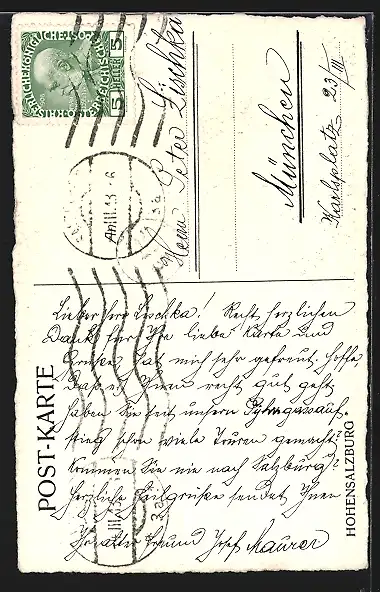 KAISERLICHE KÖNIGLICHE ÖSTERREICHISCHE POST
5 HELLER 5
III. 13 - 6
Herrn Peter Lischka
München
Karlsplatz 23/III
POST-KARTE
HOHENSALZBURG
Lieber Herr Lischka! Recht herzlichen
Dank für Ihre liebe Karte und
Grüße, hat mich sehr gefreut. Hoffe,
daß es Ihnen recht gut geht
haben Sie seit unsern
stieg schon viele Touren gemacht?
Kommen Sie nie nach Salzburg?
Herzliche sendet Ihnen
Ihr alter Freund Josef Maurer